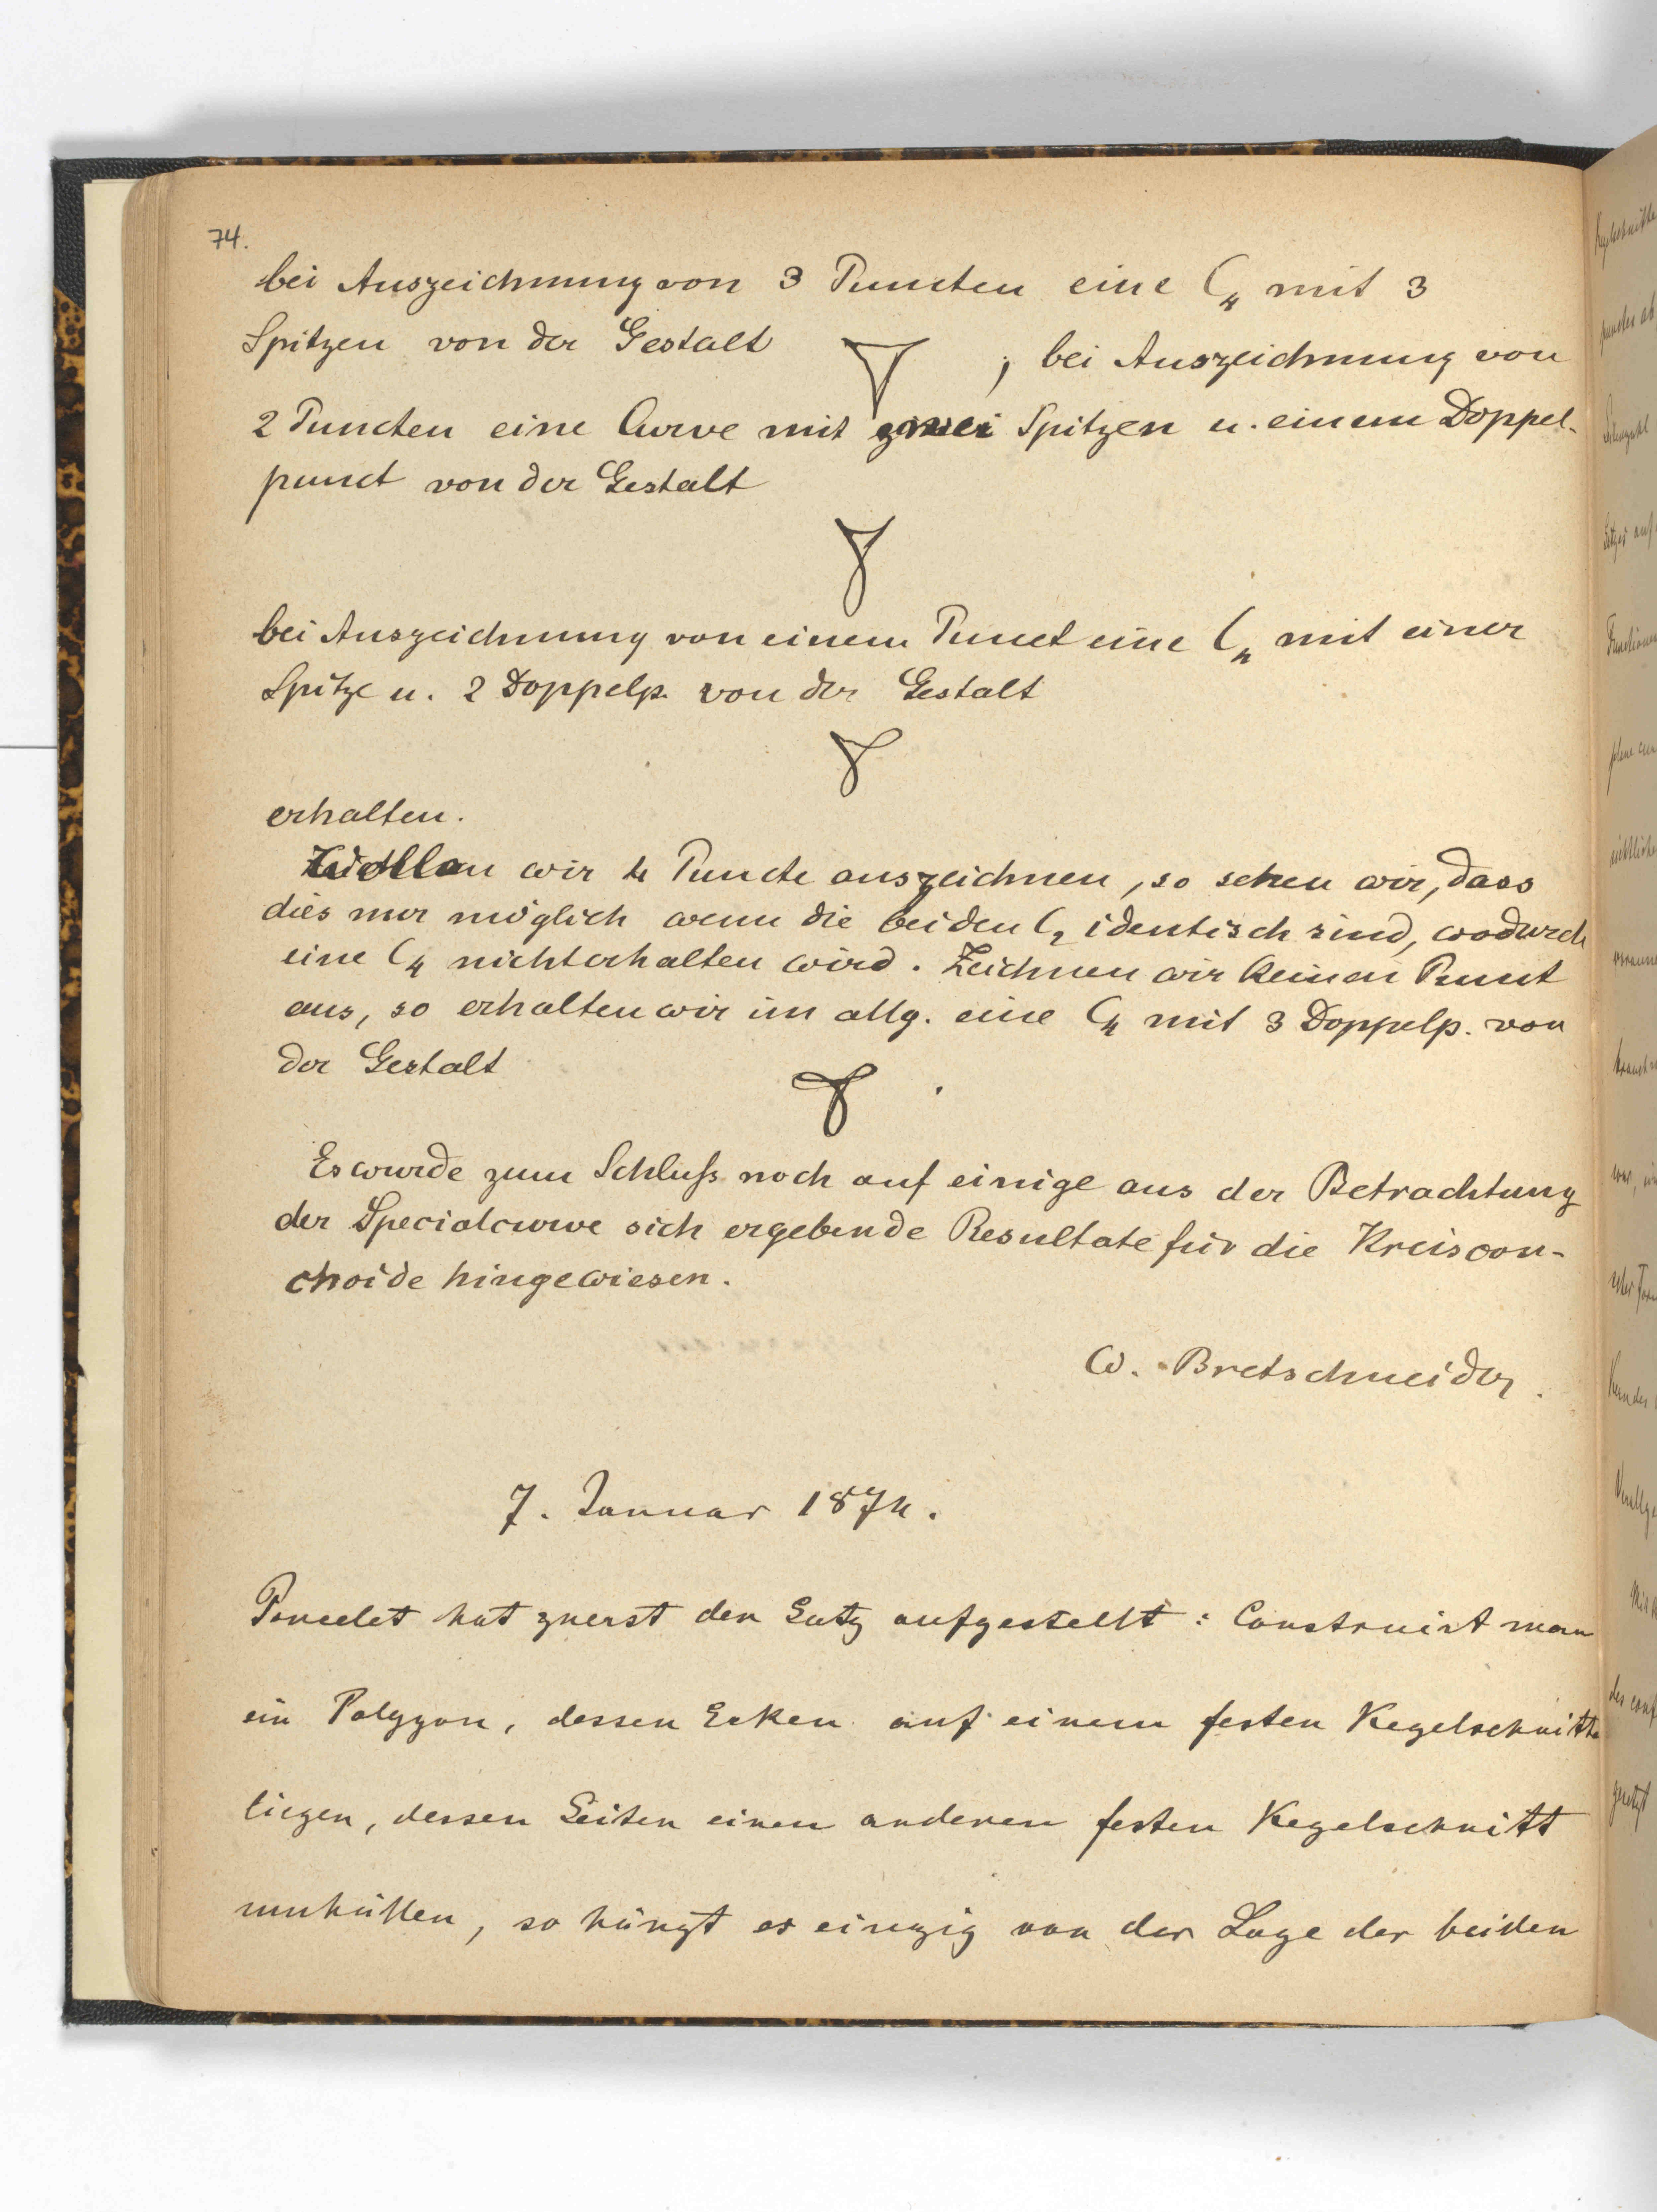 74.
bei Auszeichnung von 3 Puncten eine C₄ mit 3
Spitzen von der Gestalt ; bei Auszeichnung von
2 Puncten eine Curve mit zwei Spitzen u. einem Doppel-
punct von der Gestalt
bei Auszeichnung von einem Punct eine C₄ mit einer
Spitze u. 2 Doppelp. von der Gestalt
erhalten.
Wollen wir 4 Puncte auszeichnen, so sehen wir, dass
dies nur möglich wenn die beiden C₂ identisch sind, wodurch
eine C₄ nicht erhalten wird. Zeichnen wir keinen Punct
aus, so erhalten wir im allg. eine C₄ mit 3 Doppelp. von
der Gestalt .
Es wurde zum Schluß noch auf einige aus der Betrachtung
der Specialcurve sich ergebende Resultate für die Kreiscon-
choide hingewiesen.
W. Bretschneider.
7. Januar 1874.
Poncelet hat zuerst den Satz aufgestellt: Construirt man
ein Polygon, dessen Ecken auf einem festen Kegelschnitte
liegen, dessen Seiten einen anderen festen Kegelschnitt
umhüllen, so hängt es einzig von der Lage der beiden